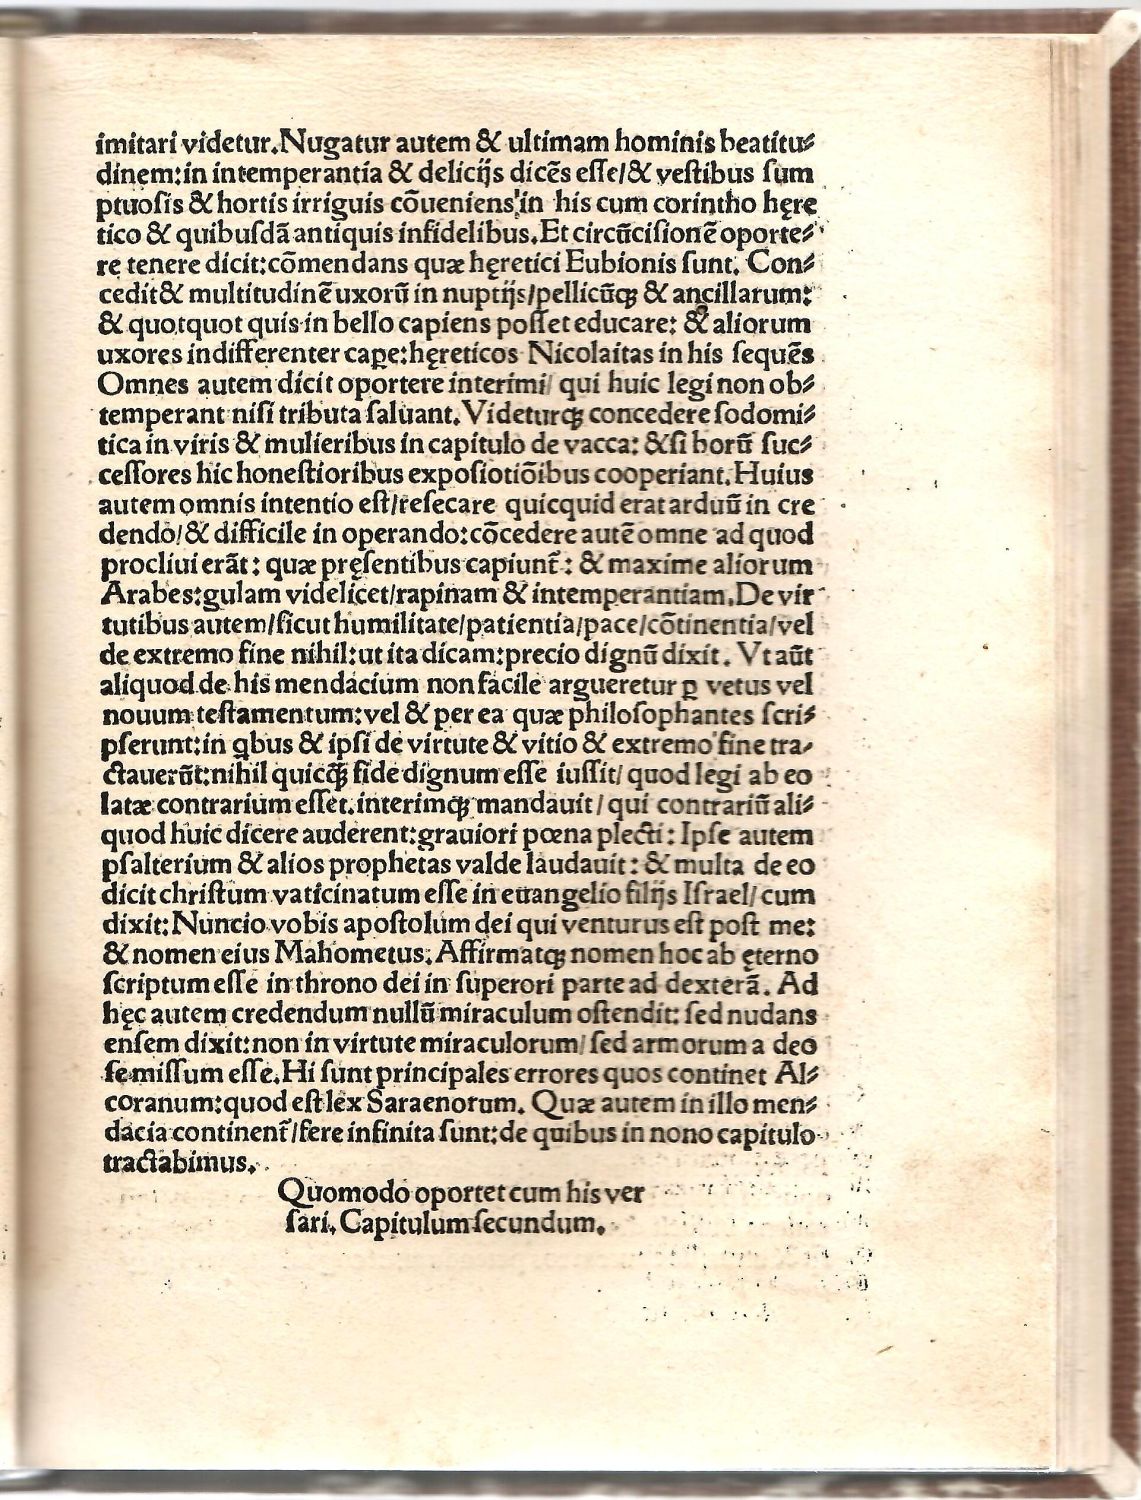 imitari videtur. Nugatur autem & ultimam hominis beatitu⸗
dinem: in intemperantia & delicijs dicēs eſſe/& veſtibus ſum
ptuoſis & hortis irriguis cōueniens in his cum corintho hęre
tico & quibuſdā antiquis infidelibus. Et circūciſionē oporte⸗
re tenere dicit: cōmendans quæ hęretici Eubionis ſunt. Con⸗
cedit & multitudinē uxorū in nuptijs/pellicūqꝫ & ancillarum:
& quotquot quis in bello capiens poſſet educare: & aliorum
uxores indifferenter cape: hęreticos Nicolaitas in his ſequēs
Omnes autem dicit oportere interimi/ qui huic legi non ob⸗
temperant niſi tributa ſaluant. Videturqꝫ concedere ſodomi⸗
tica in viris & mulieribus in capitulo de vacca: & ſi horū ſuc⸗
ceſſores hic honeſtioribus expoſiotiōibus cooperiant. Huius
autem omnis intentio eſt/reſecare quicquid erat arduū in cre
dendo/& difficile in operando: cōcedere autē omne ad quod
procliui erāt: quæ pręſentibus capiunt̄: & maxime aliorum
Arabes: gulam videlicet/rapinam & intemperantiam. De vir
tutibus autem/ſicut humilitate/patientia/pace/cōtinentia/vel
de extremo fine nihil: ut ita dicam: precio dignū dixit. Vt aūt
aliquod de his mendacium non facile argueretur ꝑ vetus vel
nouum teſtamentum: vel & per ea quæ philoſophantes ſcri⸗
pſerunt: in qbus & ipſi de virtute & vitio & extremo fine tra⸗
ctauerūt: nihil quicqꝫ fide dignum eſſe iuſſit/ quod legi ab eo
latæ contrarium eſſet. interimqꝫ mandauit/ qui contrariū ali⸗
quod huic dicere auderent: grauiori pœna plecti: Ipſe autem
pſalterium & alios prophetas valde laudauit: & multa de eo
dicit chriſtum vaticinatum eſſe in euangelio filijs Iſrael/ cum
dixit: Nuncio vobis apoſtolum dei qui venturus eſt poſt me:
& nomen eius Mahometus. Affirmatqꝫ nomen hoc ab ęterno
ſcriptum eſſe in throno dei in ſuperori parte ad dexterā. Ad
hęc autem credendum nullū miraculum oſtendit: ſed nudans
enſem dixit: non in virtute miraculorum/ ſed armorum a deo
ſe miſſum eſſe. Hi ſunt principales errores quos continet Al⸗
coranum: quod eſt lex Saraenorum. Quæ autem in illo men⸗
dacia continent̄/fere infinita ſunt: de quibus in nono capitulo
tractabimus.
Quomodo oportet cum his ver
ſari. Capitulum ſecundum.